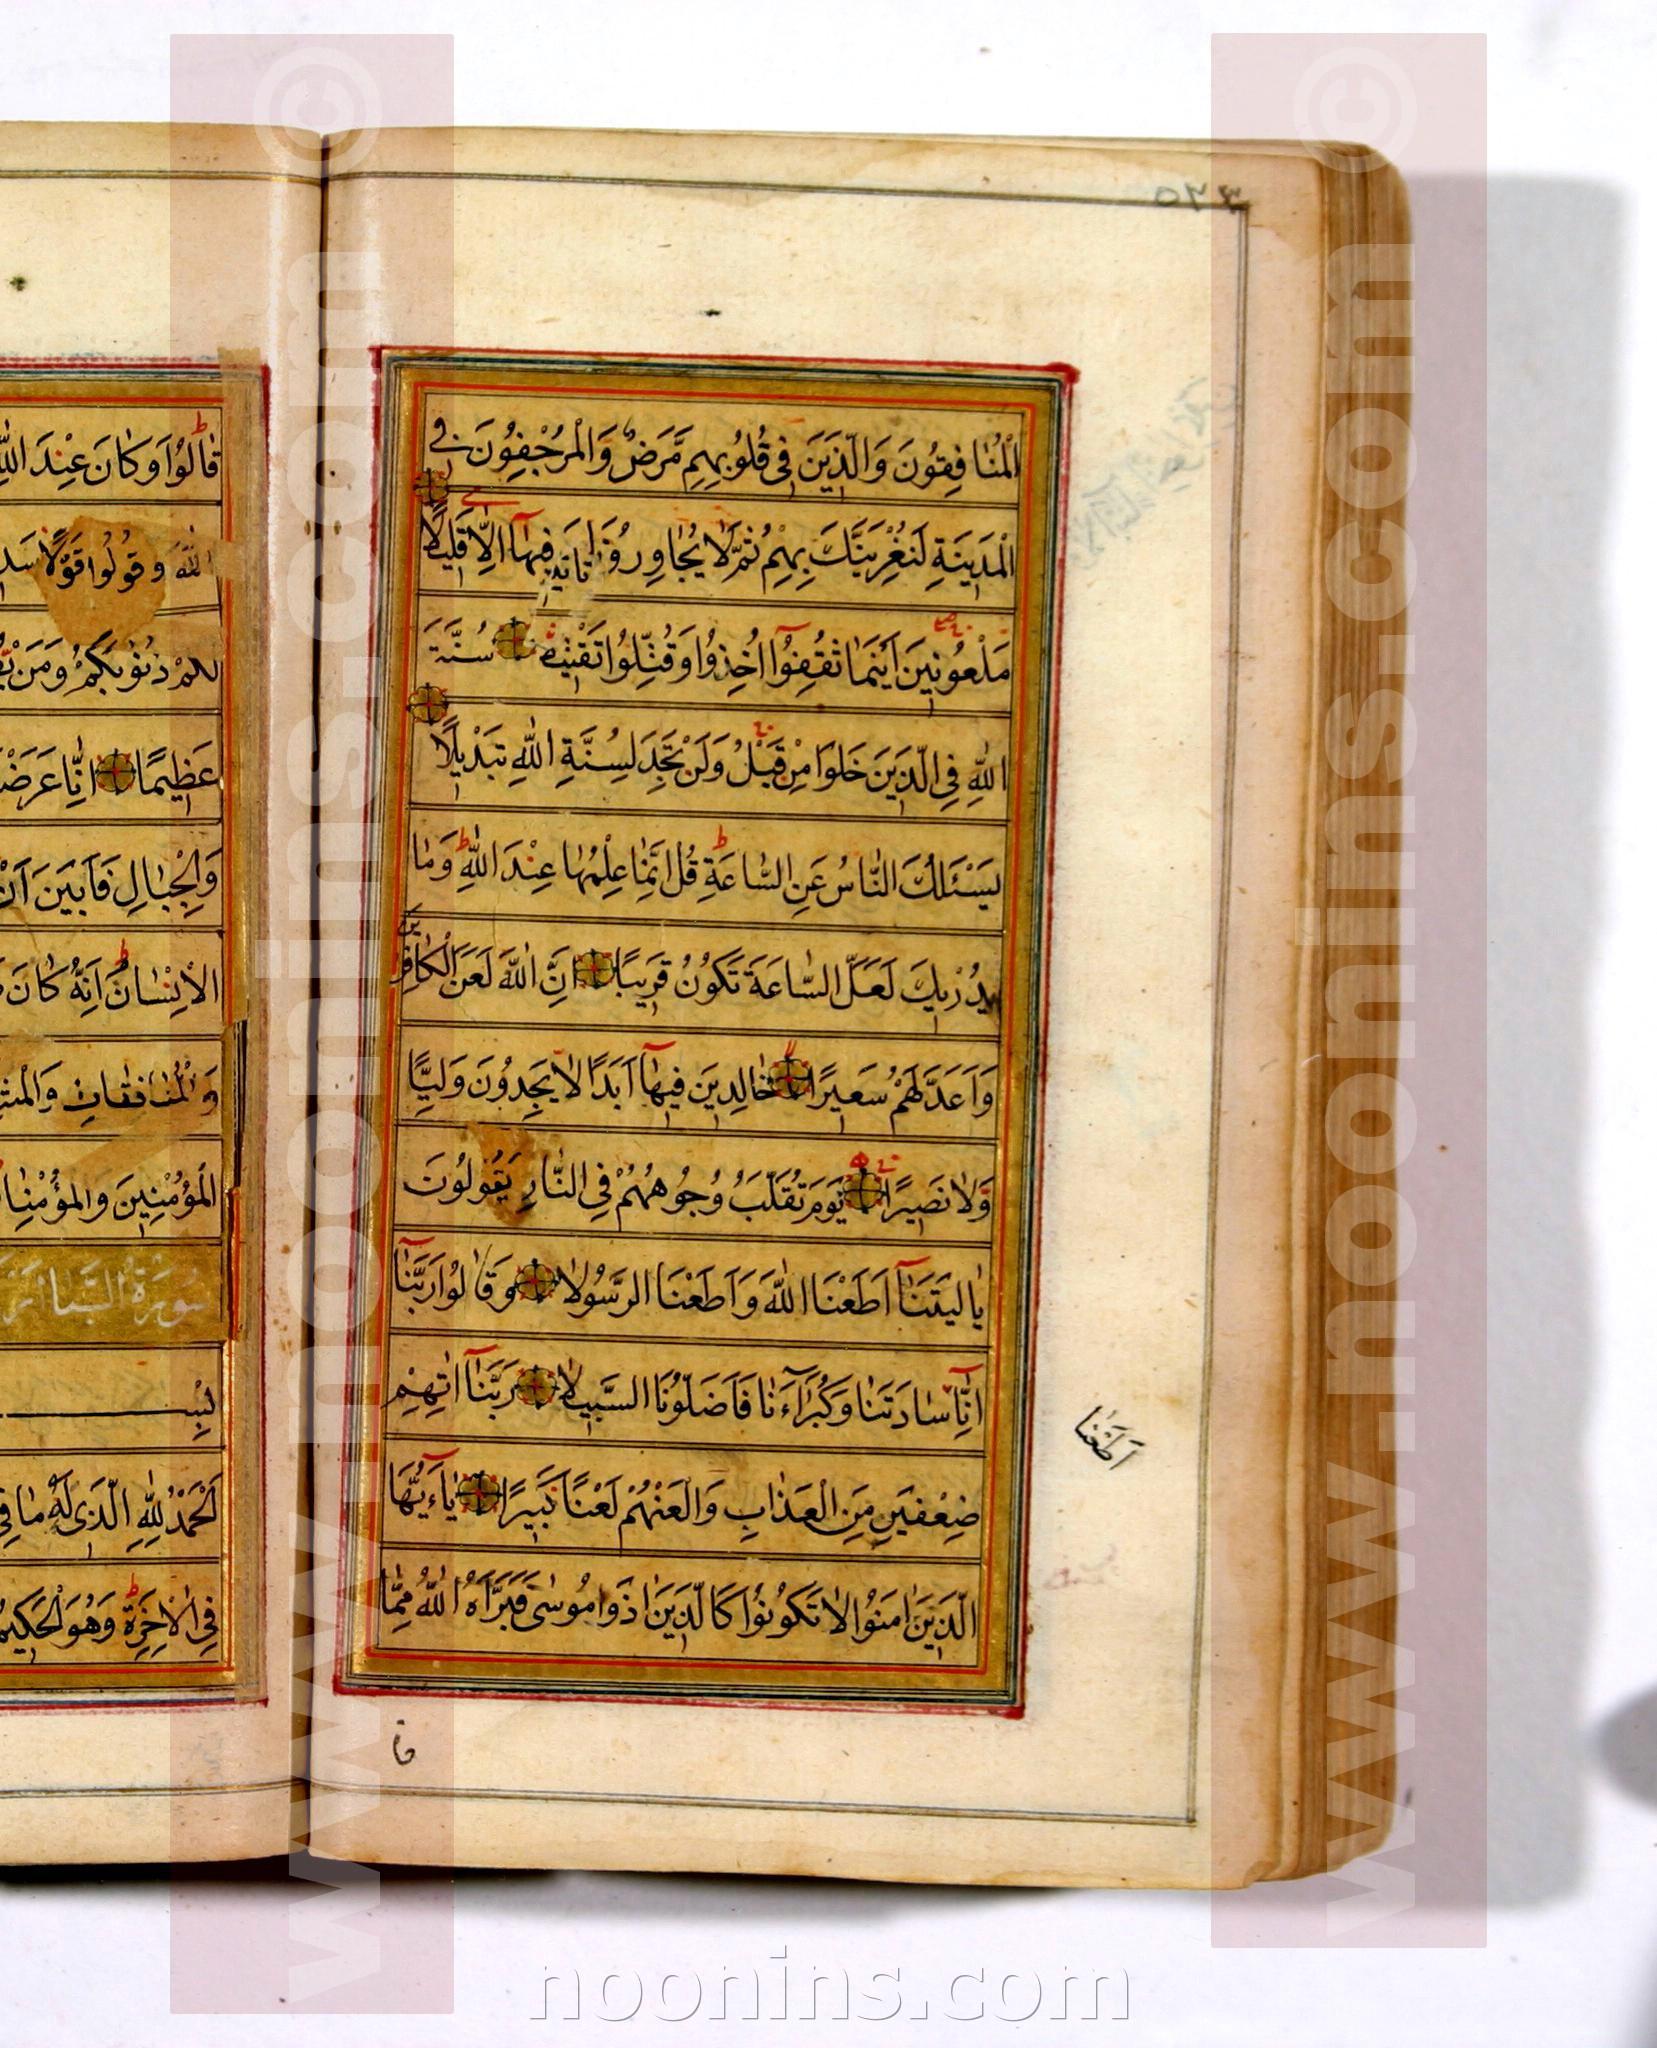 ٣٦٥
الْمُنَافِقُونَ وَالَّذِينَ فِي قُلُوبِهِمْ مَرَضٌ وَالْمُرْجِفُونَ فِي
الْمَدِينَةِ لَنُغْرِيَنَّكَ بِهِمْ ثُمَّ لَا يُجَاوِرُونَ فِيهَا إِلَّا قَلِيلًا
مَلْعُونِينَ أَيْنَمَا ثُقِفُوا أُخِذُوا وَقُتِّلُوا تَقْتِيلًا سُنَّةَ
اللَّهِ فِي الَّذِينَ خَلَوْا مِنْ قَبْلُ وَلَنْ تَجِدَ لِسُنَّةِ اللَّهِ تَبْدِيلًا
يَسْئَلُكَ النَّاسُ عَنِ السَّاعَةِ قُلْ إِنَّمَا عِلْمُهَا عِنْدَ اللَّهِ وَمَا
يُدْرِيكَ لَعَلَّ السَّاعَةَ تَكُونُ قَرِيبًا إِنَّ اللَّهَ لَعَنَ الْكَافِرِينَ
وَأَعَدَّ لَهُمْ سَعِيرًا خَالِدِينَ فِيهَا أَبَدًا لَا يَجِدُونَ وَلِيًّا
وَلَا نَصِيرًا يَوْمَ تُقَلَّبُ وُجُوهُهُمْ فِي النَّارِ يَقُولُونَ
يَا لَيْتَنَا أَطَعْنَا اللَّهَ وَأَطَعْنَا الرَّسُولَا وَقَالُوا رَبَّنَا
إِنَّا سَادَتَنَا وَكُبَرَاءَنَا فَأَضَلُّونَا السَّبِيلَا رَبَّنَا آتِهِمْ
أَطَعْنَا
ضِعْفَيْنِ مِنَ الْعَذَابِ وَالْعَنْهُمْ لَعْنًا كَبِيرًا يَاءَيُّهَا
الَّذِينَ آمَنُوا لَا تَكُونُوا كَالَّذِينَ آذَوْا مُوسَى فَبَرَّأَهُ اللَّهُ مِمَّا
قا
قَالُوا وَكَانَ عِنْدَ اللَّهِ
اللَّهَ وَقُولُوا قَوْلًا
لَكُمْ ذُنُوبَكُمْ وَمَنْ
عَظِيمًا إِنَّا
وَالْجِبَالِ فَأَبَيْنَ أَنْ
الْإِنْسَانُ إِنَّهُ كَانَ
وَالْمُنَافِقَاتِ
الْمُؤْمِنِينَ
سُورَةُ السَّبَا
بِسْـ
الْحَمْدُ لِلَّهِ الَّذِي لَهُ مَا فِي
فِي الْآخِرَةِ وَهُوَ الْحَكِيمُ
www.noonins.com ©
www.noonins.com ©
noonins.com